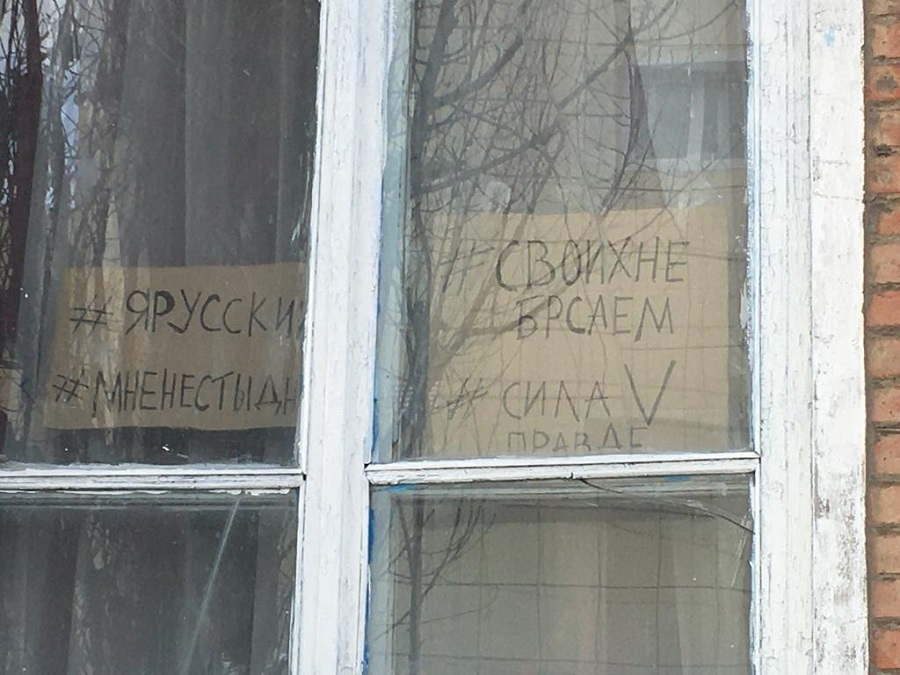 #ЯРУССКИЙ
#МНЕНЕСТЫДН
#СВОИХНЕ
БРСАЕМ
#СИЛА V
ПРАВДЕ